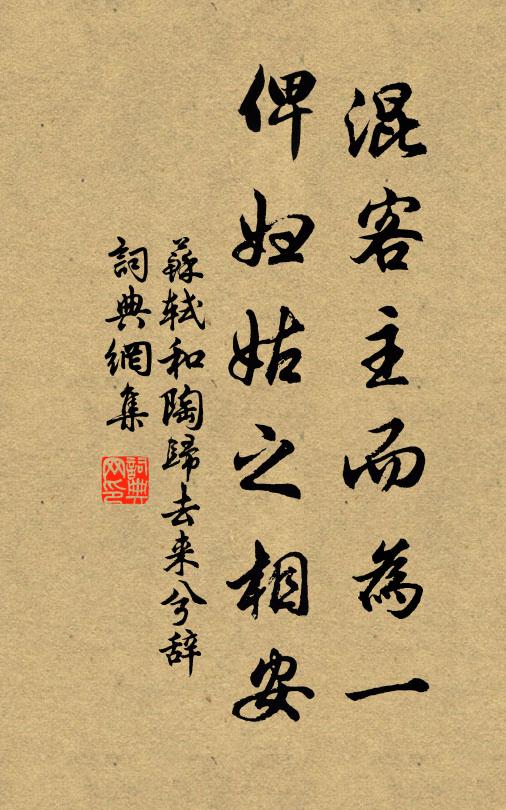 混客主而為一
俾妇姑之相安
蘇轼和陶歸去来兮辞
詞典網集
詞典
网印